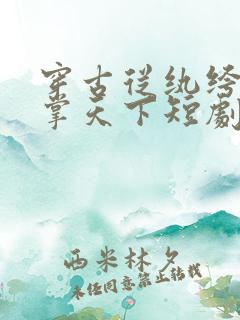 穿古从纨绔
掌天下短劇
西米林夕
未经同意禁止转载